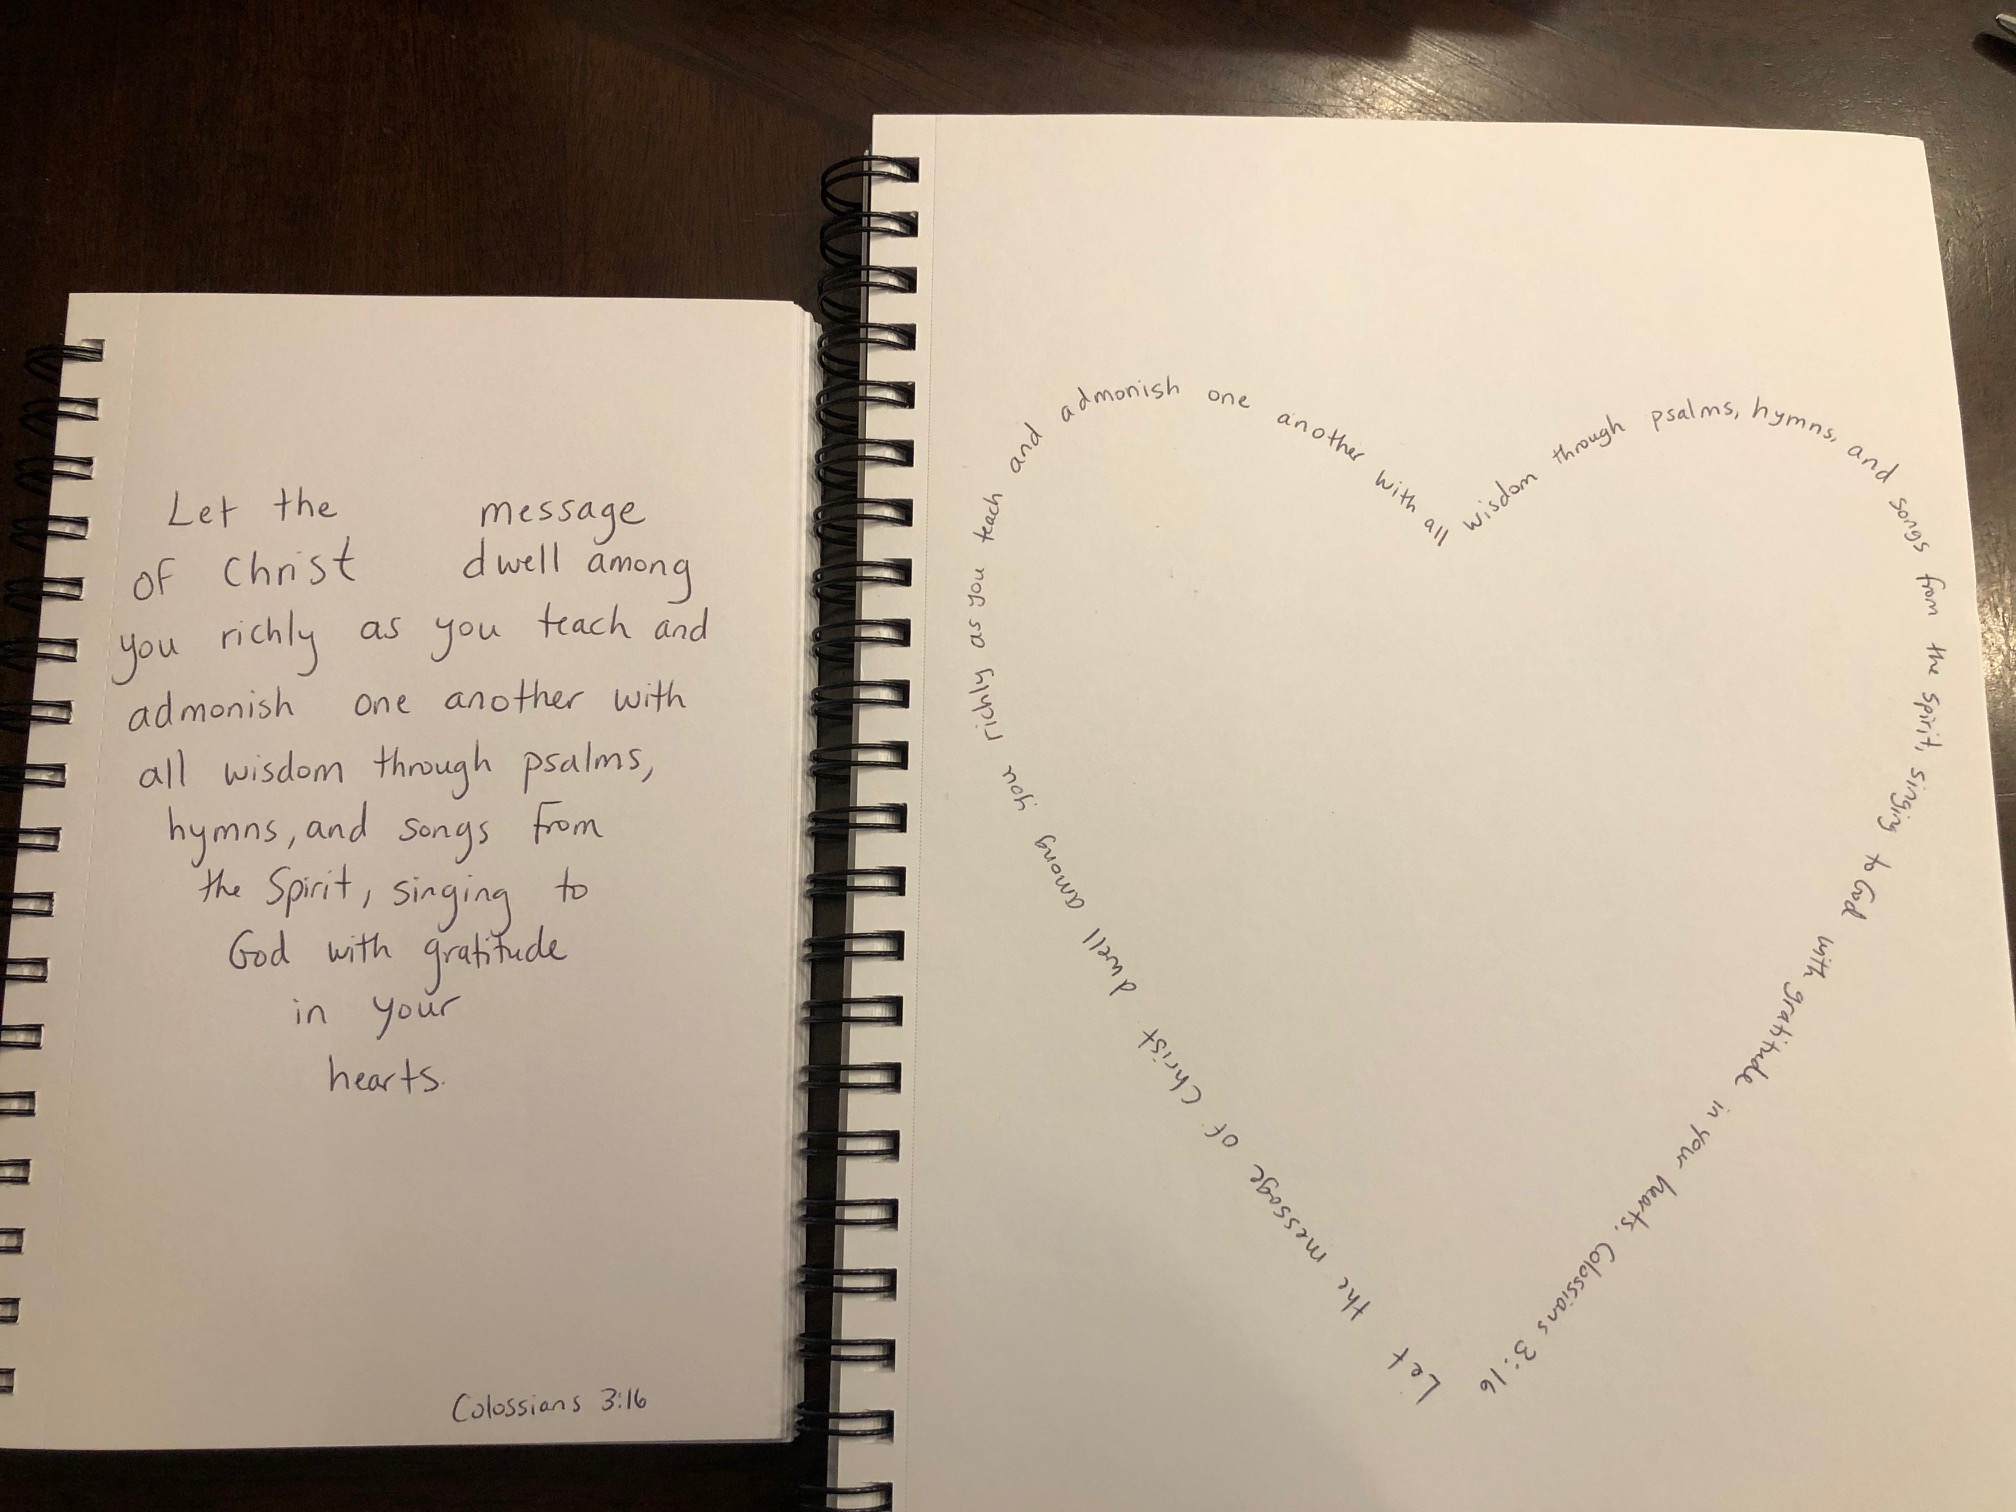 Let the message
of Christ dwell among
you richly as you teach and
admonish one another with
all wisdom through psalms,
hymns, and songs from
the Spirit, singing to
God with gratitude
in your
hearts.
Colossians 3:16
Let the messsage of Christ dwell among you richly as you teach and admonish one another with all wisdom through psalms, hymns, and songs from the Spirit, singing to God with gratitude in your hearts. Colossians 3:16